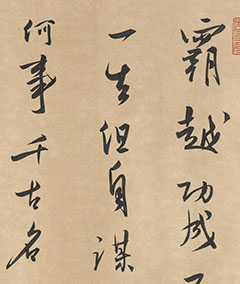 霸越功成
一生但自謀
何事千古名